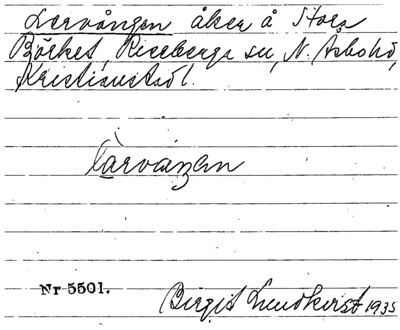 Lervången åker å Stora
Böcket, Riseberga sn, N. Åsbo hd,
Kristianstad l.
lärvaŋen
Nr 5501.
Birgit Lundkvist 1935